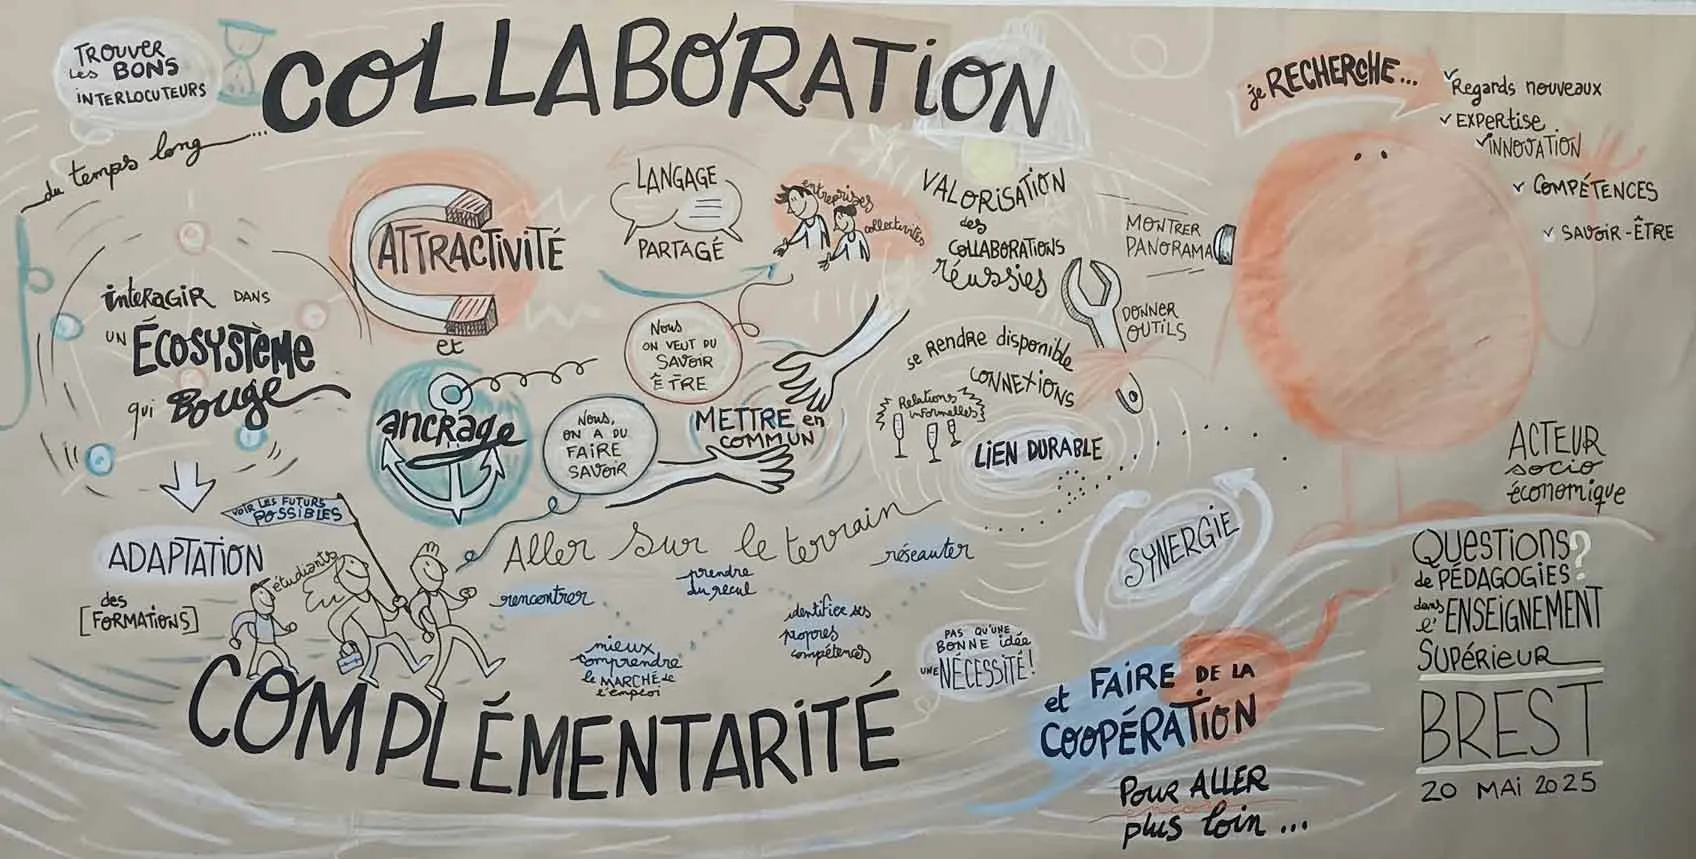 TROUVER
Les BONS
iNTERLOCUTEURS
COLLABORATiON
du temps long...
ATTRACTiViTÉ
et
ANCRAGE
LANGAGE
PARTAGÉ
entreprises
collectivités
VALORiSATiON
des
COLLABORATiONS
réussies
MONTRER
PANORAMA
DONNER
OUTiLS
je RECHERCHE...
Regards nouveaux
EXPERTiSE
iNNOVATiON
COMPÉTENCES
SAVOiR-ÊTRE
iNTERAGiR DANS
UN ÉCOSYSTÈME
qui Bouge
Nous
ON VEUT DU
SAVOiR
ÊTRE
Nous,
ON A DU
FAiRE
SAVOiR
METTRE en
COMMUN
se RENDRE disponible
CONNEXiONS
Relations
informelles
LiEN DURABLE
ACTEUR
socio
économique
VOiR LES FUTURS
POSSiBLES
ADAPTATiON
des
[FORMATiONS]
étudiants
Aller sur le terrain
rencontrer
prendre
du recul
réseauter
mieux
comprendre
le MARCHÉ de
l'emploi
identifier ses
propres
compétences
SYNERGiE
PAS QU'UNE
BONNE idée
UNE NÉCESSiTÉ!
COMPLÉMENTARiTÉ
et FAiRE DE LA
COOPÉRATiON
Pour ALLER
plus loin...
QUESTiONS?
de PÉDAGOGiES
dans
l'ENSEiGNEMENT
SUPÉRiEUR
BREST
20 MAi 2025